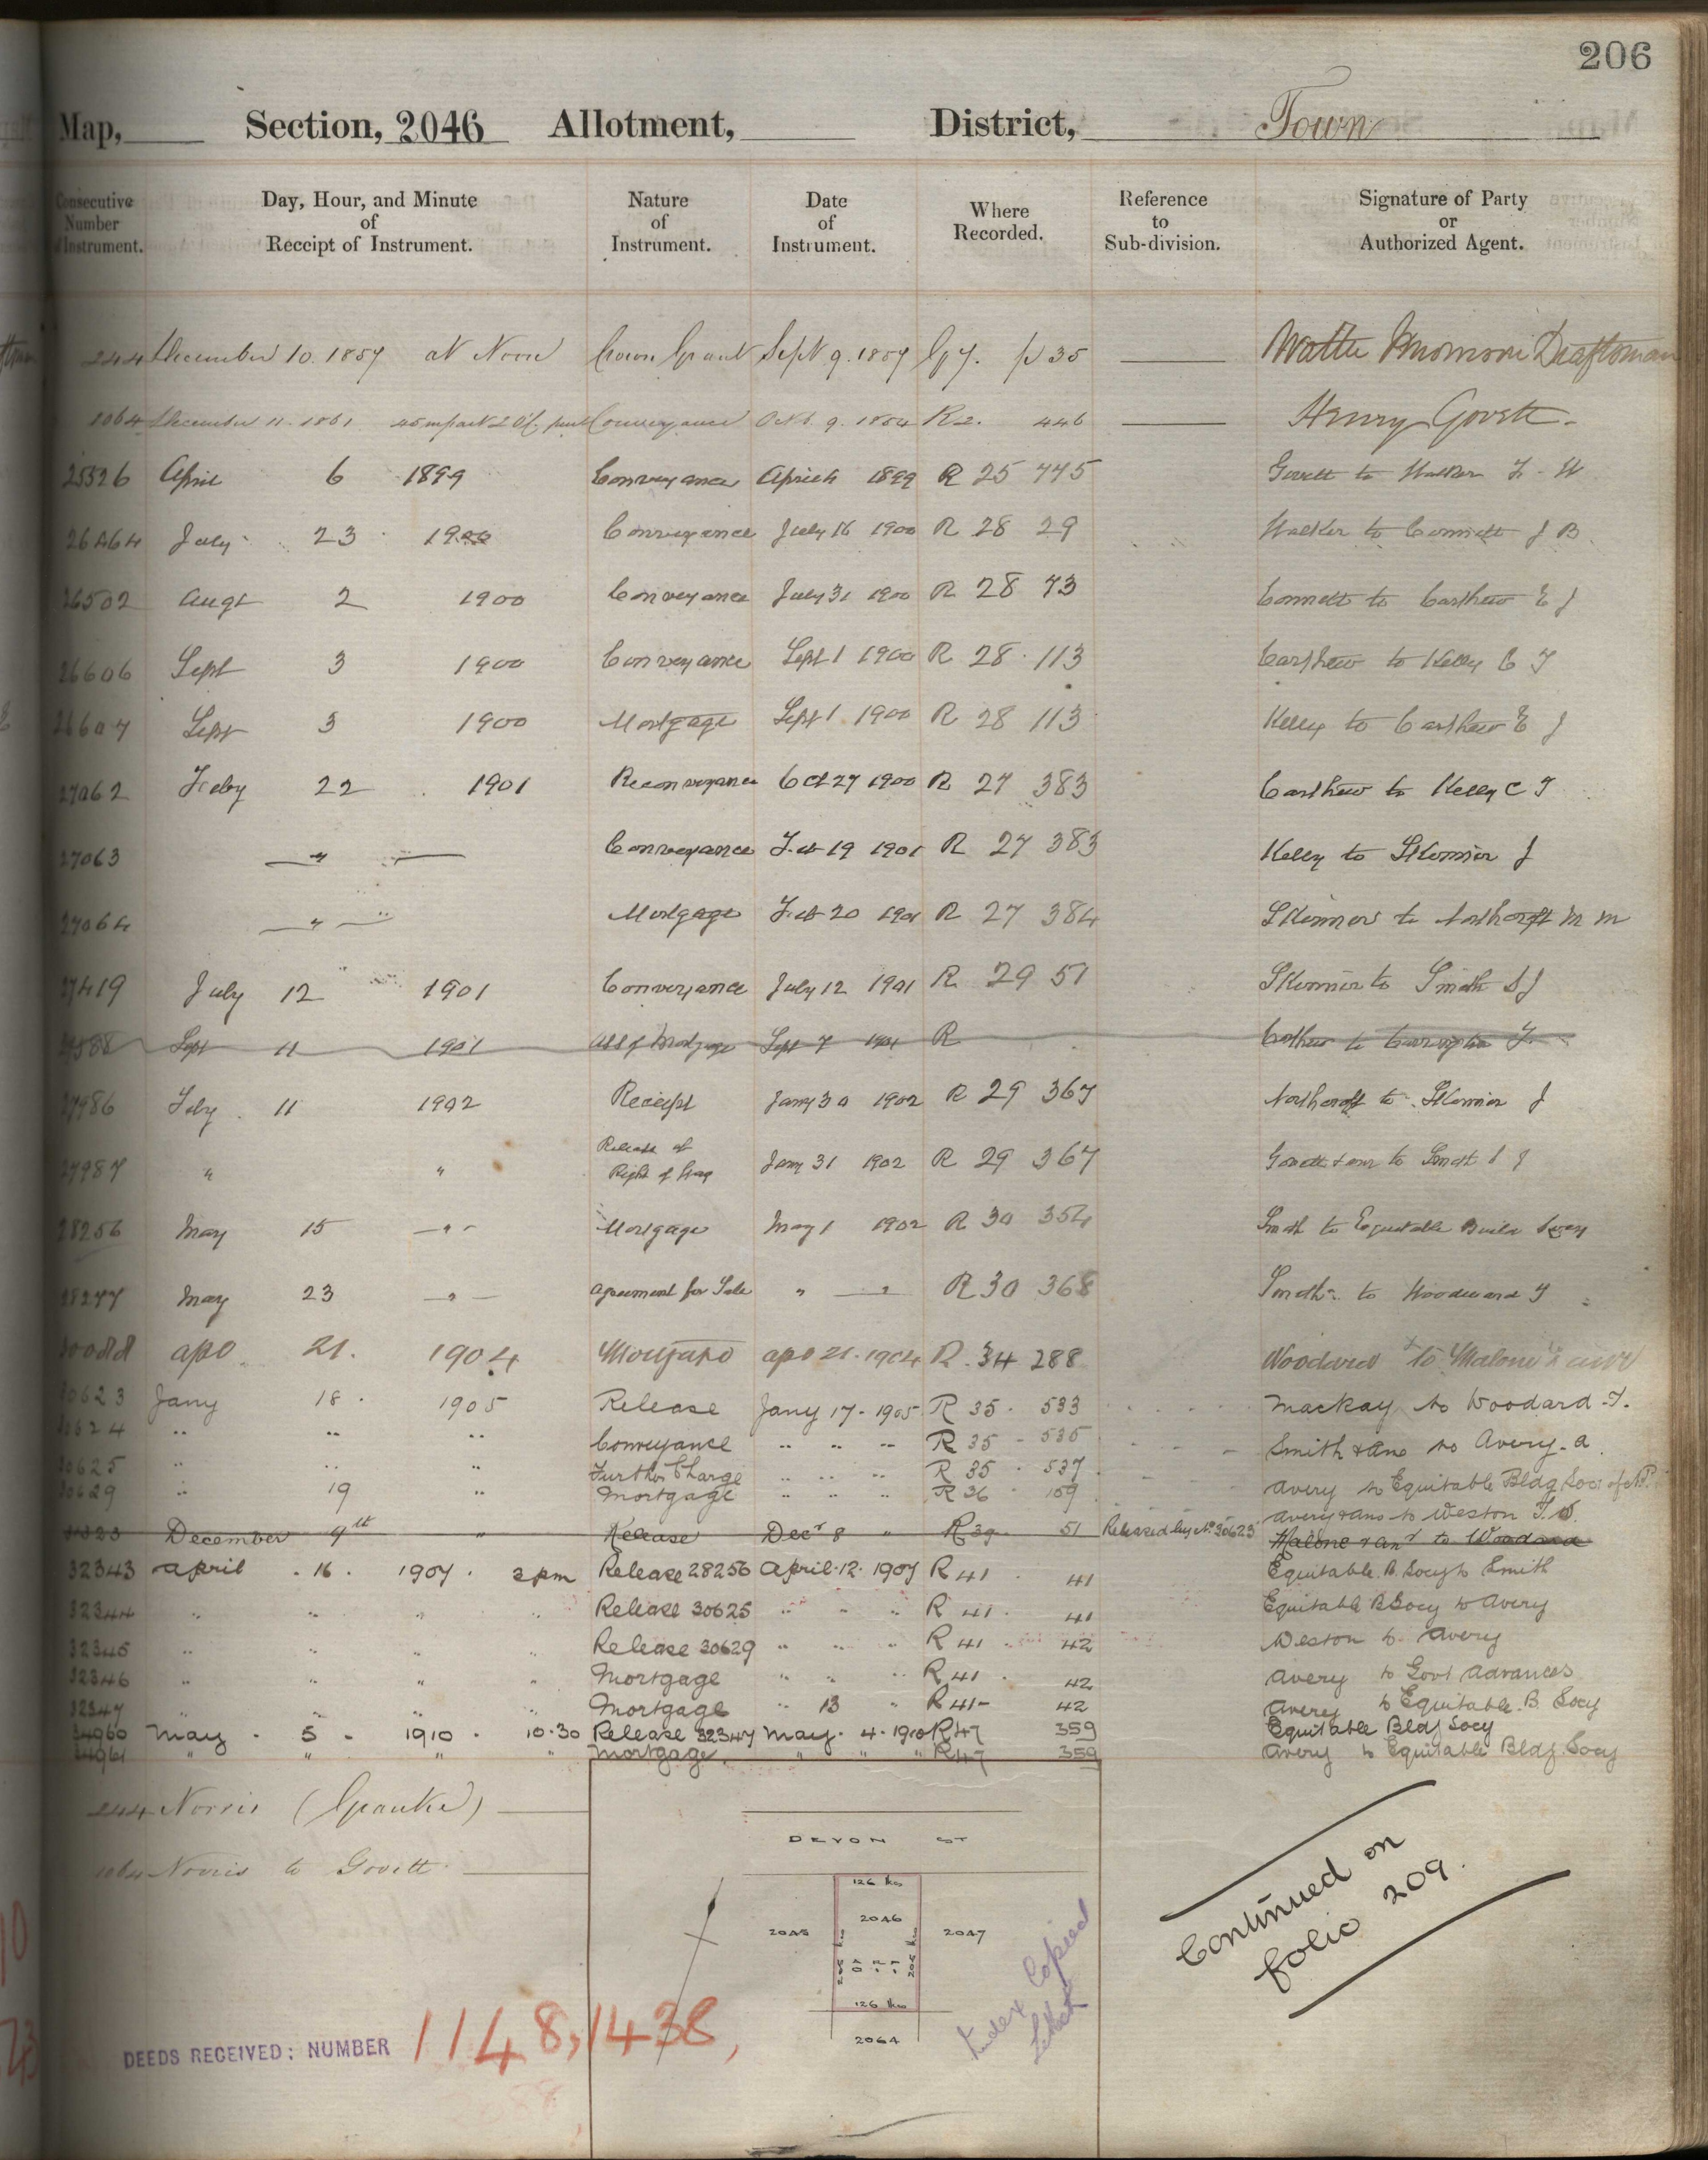 206
Map, Section, 2046 Allotment, District, Town
Consecutive Number Instrument. Day, Hour, and Minute of Receipt of Instrument. Nature of Instrument. Date of Instrument. Where Recorded. Reference to Sub-division. Signature of Party or Authorized Agent.
244 December 10. 1857 at Noon Crown Grant Sept 9. 1857 G 7. p 35 Draftsman
1064 December 11. 1861 45 m past 2 Conveyance Octb. 9. 1854 R2. 446 Henry Govett
25326 April 6 1899 Conveyance April 4 1899 R 25 445 Govett to Walker F. W
26464 July 23 1900 Conveyance July 16 1900 R 28 29 Walker to Connett J B
26502 Augt 2 1900 Conveyance July 31 1900 R 28 73 Connett to Carthew E J
26606 Sept 3 1900 Conveyance Sept 1 1900 R 28 113 Carthew to Kelly C T
26607 Sept 3 1900 Mortgage Sept 1 1900 R 28 113 Kelly to Carthew E J
27062 Feby 22 1901 Reconveyance Oct 27 1900 R 27 383 Carthew to Kelly C T
27063 " Conveyance Feb 19 1901 R 27 383 Kelly to Skinner J
27064 " Mortgage Feb 20 1901 R 27 384 Skinner to Northcroft M M
27419 July 12 1901 Conveyance July 12 1901 R 29 51 Skinner to Smith S J
Sept 11 1901 Ass of Mortgage Sept 7 1901 R Carthew to Carrington F.
27986 Feby 11 1902 Receipt Jany 30 1902 R 29 367 Northcroft to Skinner J
27987 " " Release of Right of Way Jany 31 1902 R 29 367 Govett & anr to Smith S J
28256 May 15 " Mortgage May 1 1902 R 30 354 Smith to Equitable Build Socy
28277 May 23 " Agreement for Sale " " R 30 368 Smith to Woodward T
Apl 21. 1904 Mortgage Apl 21. 1904 R. 34 288 Woodward to Malone & anr
30623 Jany 18. 1905 Release Jany 17. 1905 R 35. 533 Mackay to Woodard T.
30624 " " " Conveyance " " " R 35 - 535 Smith & Ano to Avery. A.
30625 " " " Further Charge " " " R 35 . 537 Avery to Equitable Bldg Soc: of N.P.
30629 " 19 " Mortgage " " " R 36 109 Avery & ano to Weston T. S.
December 9th " Release Decr 8 " R 39. 51 Released by No 30623 Malone & anr to Woodard
32343 April . 16 . 1907 . 2 pm Release 28256 April. 12. 1907 R 41 . 41 Equitable. B. Socy to Smith
32344 " " " " Release 30625 " " " R 41 . 41 Equitable B Socy to Avery
32345 " " " " Release 30629 " " " R 41 . 42 Weston to Avery
32346 " " " " Mortgage " " " R 41 . 42 Avery to Govt Advances
32347 " " " " Mortgage " 13 " R 41 - 42 Avery to Equitable. B Socy
34960 May . 5 - 1910 . 10.30 Release 32347 May. 4. 1910 R 47 359 Equitable Bldg Socy
34961 " " " " Mortgage. " " " R 47 359 Avery to Equitable Bldg. Socy
244 Norris (Grantee)
1064 Norris to Govett
DEVON ST
126 lks
2045 2046 2047
126 lks
2064
Index Copied
Continued on
folio 209.
DEEDS RECEIVED: NUMBER 1148, 1438,